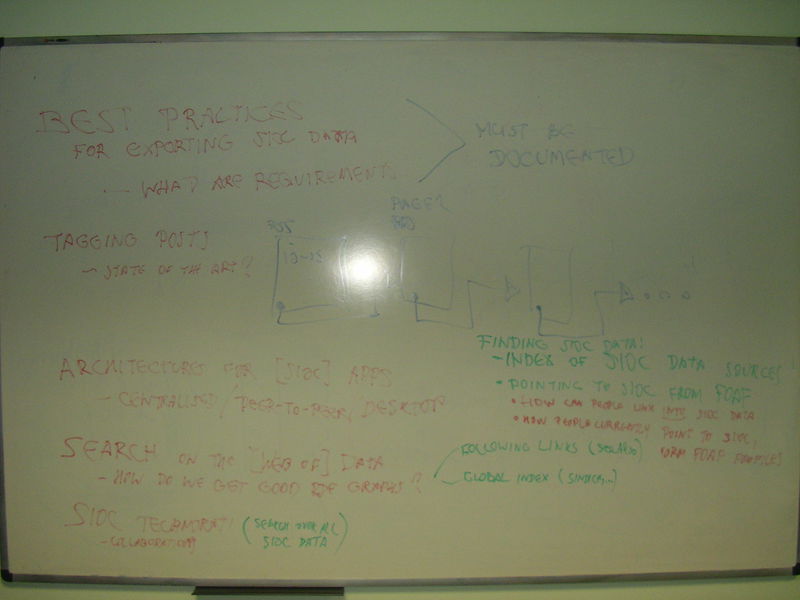 BEST PRACTICES
FOR EXPORTING SIOC DATA
- WHAT ARE REQUIREMENTS
MUST BE
DOCUMENTED
TAGGING POSTS
- STATE OF THE ART?
PAGE2
ARCHITECTURES FOR [SIOC] APPS
- CENTRALISED / PEER-TO-PEER, DESKTOP
SEARCH ON THE [WEB OF] DATA
- HOW DO WE GET GOOD RDF GRAPHS?
FOLLOWING LINKS
GLOBAL INDEX (SINDICE,...)
SIOC TECHNORATI (SEARCH OVER ALL
SIOC DATA)
- COLLABORATION
FINDING SIOC DATA!
- INDEX OF SIOC DATA SOURCES
• POINTING TO SIOC FROM FOAF
• HOW CAN PEOPLE LINK INTO SIOC DATA
• HOW PEOPLE CURRENTLY POINT TO SIOC,
FOAF PROFILES